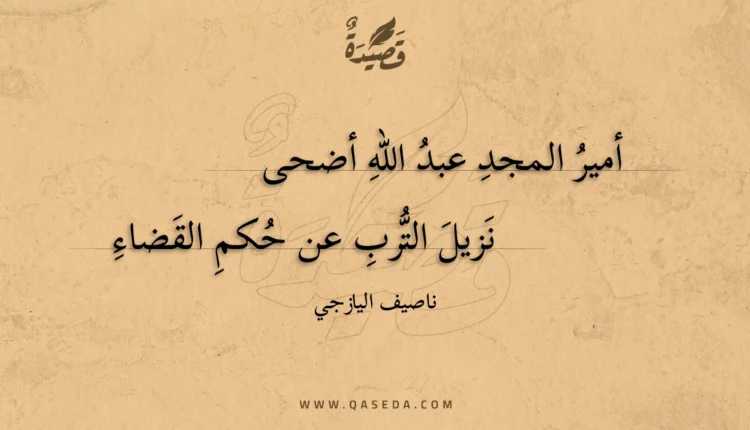 قَصِيدَةٌ
أميرُ المجدِ عبدُ اللهِ أضحى
نَزيلَ التُّربِ عن حُكمِ القَضاءِ
ناصيف اليازجي
WWW.QASEDA.COM